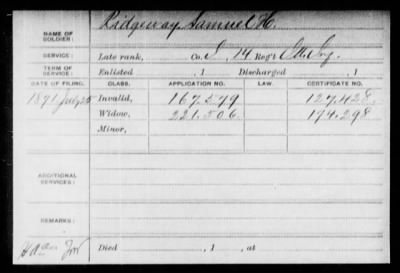 NAME OF SOLDIER: Ridgeway, Samuel H.
SERVICE: Late rank, Co. I, 14 Reg't
TERM OF SERVICE: Enlisted , 1 Discharged , 1
DATE OF FILING. CLASS. APPLICATION NO. LAW. CERTIFICATE NO.
1871 July 25 Invalid, 167.579 127.428
Widow, 221.506 174.298
Minor,
ADDITIONAL SERVICES:
REMARKS:
Died , 1 , at